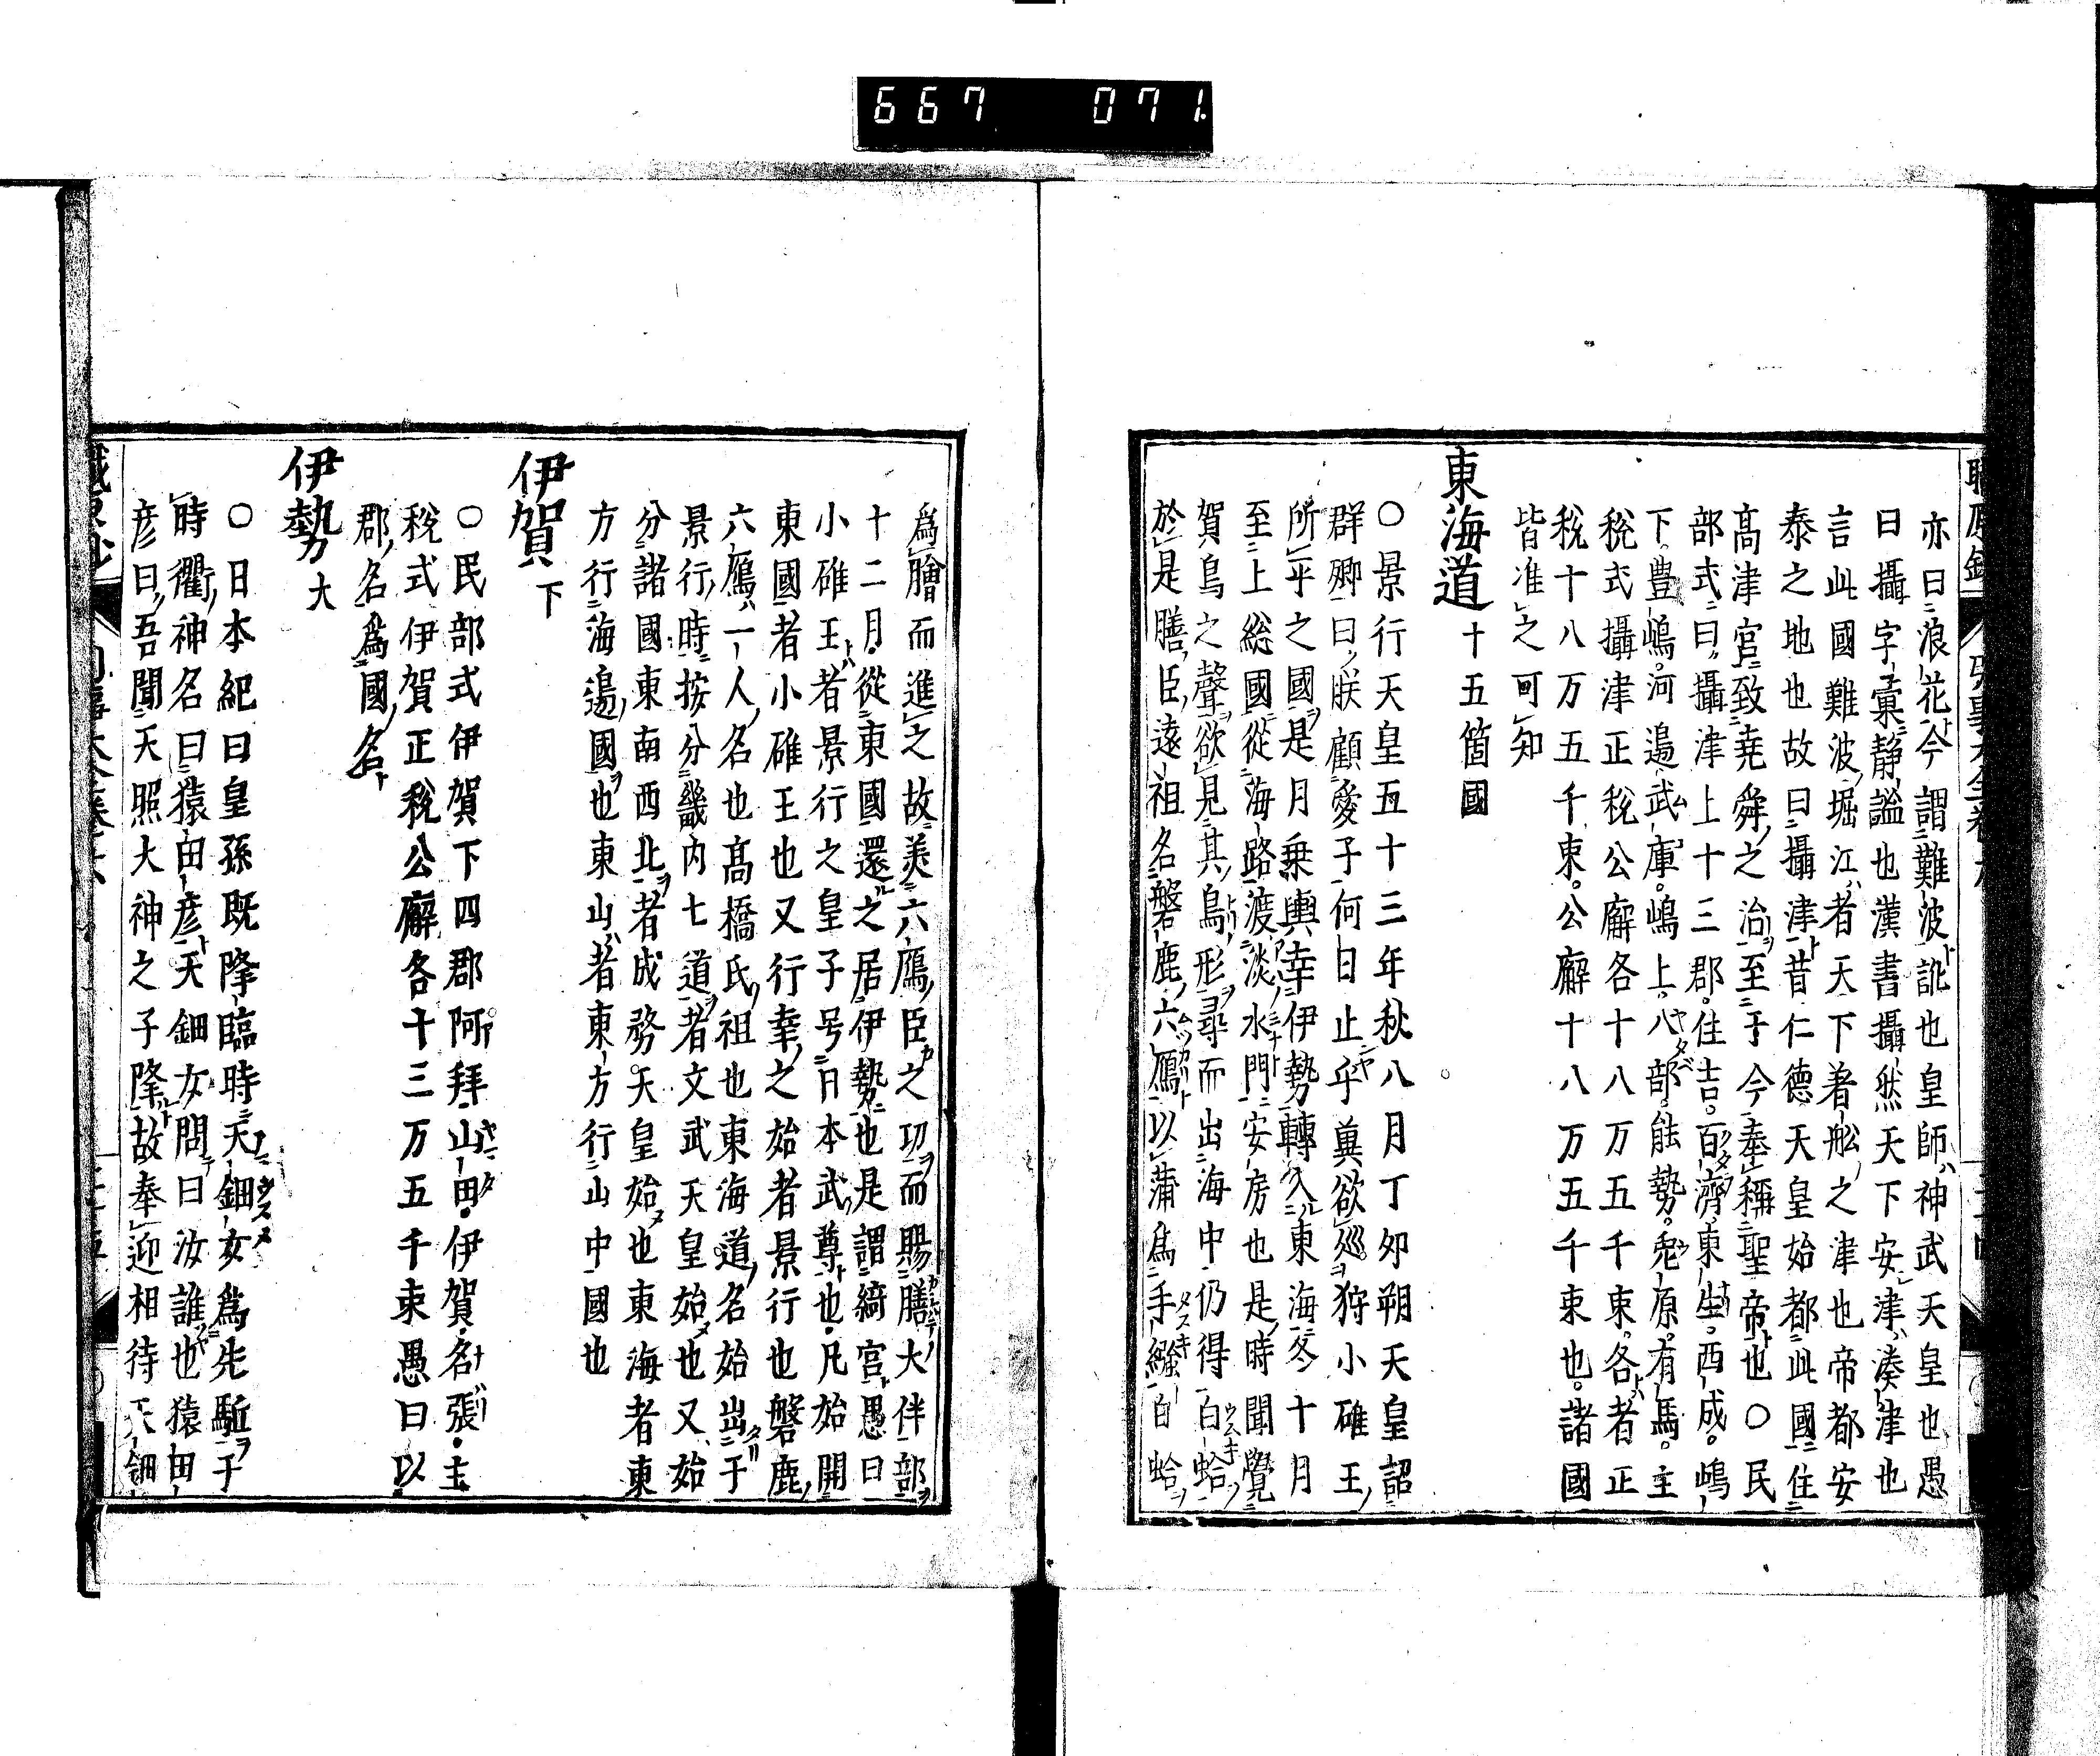 667 071.
亦曰浪花今謂難波訛也皇師神武天皇也愚
曰攝字彙静謐也漢書攝然天下安津湊津也
言此國難波堀江者天下著舩之津也帝都安
泰之地也故曰攝津昔仁德天皇始都此國住
高津宮致尭舜之治至于今奉稱聖帝也〇民
部式曰攝津上十三郡住吉百濟東生西成嶋
下豊嶋河邉武庫嶋上八部能勢兎原有馬主
稅式攝津正稅公廨各十八万五千束各者正
稅十八万五千束公廨十八万五千束也諸國
皆准之可知
東海道十五箇國
〇景行天皇五十三年秋八月丁夘朔天皇詔
群卿曰朕顧愛子何日止乎冀欲廵狩小碓王
所平之國是月乗輿幸伊勢轉入東海冬十月
至上総國從海路渡淡水門安房也是時聞覺
賀鳥之聲欲見其鳥形尋而出海中仍得白蛤
於是膳臣遠祖名磐鹿六鴈以蒲為手繦白蛤
為膾而進之故美六鴈臣之功而賜膳大伴部
十二月從東國還之居伊勢也是謂綺宮愚曰
小碓王者景行之皇子号日本武尊也凡始開
東國者小碓王也又行幸之始者景行也磐鹿
六鴈一人名也高橋氏祖也東海道名始出于
景行時按分畿内七道者文武天皇始也又始
分諸國東南西北者成務天皇始也東海者東
方行海邉國也東山者東方行山中國也
伊賀下
〇民部式伊賀下四郡阿拜山田伊賀名張主
稅式伊賀正稅公廨各十三万五千束愚曰以
郡名為國名
伊勢大
〇日本紀曰皇孫既降臨時天鈿女為先駈于
時衢神名曰猿田彦天鈿女問曰汝誰也猿田
彦曰吾聞天照大神之子降故奉迎相待天鈿